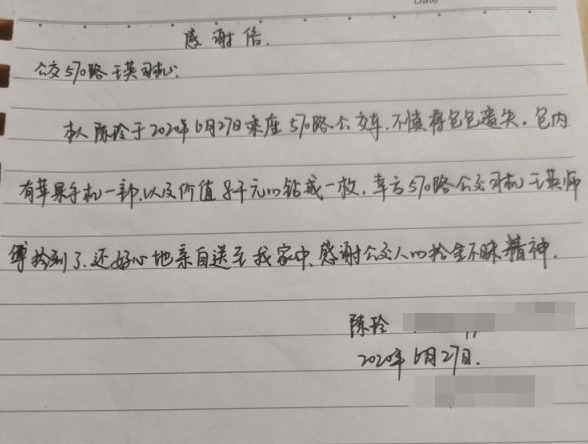 Date
感谢信.
公交570路王英司机:
本人陈玲于2020年6月27日乘座570路公交车,不慎将包包遗失,包内
有苹果手机一部,以及价值8千元的钻戒一枚,幸亏570路公交司机王英师
傅拾到了,还好心地亲自送至我家中,感谢公交人的拾金不昧精神.
陈玲
2020年6月27日.